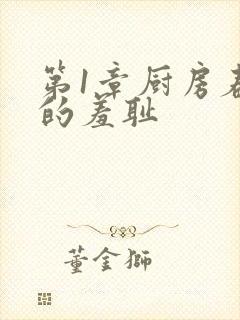 第1章厨房春
的羞耻
董金狮